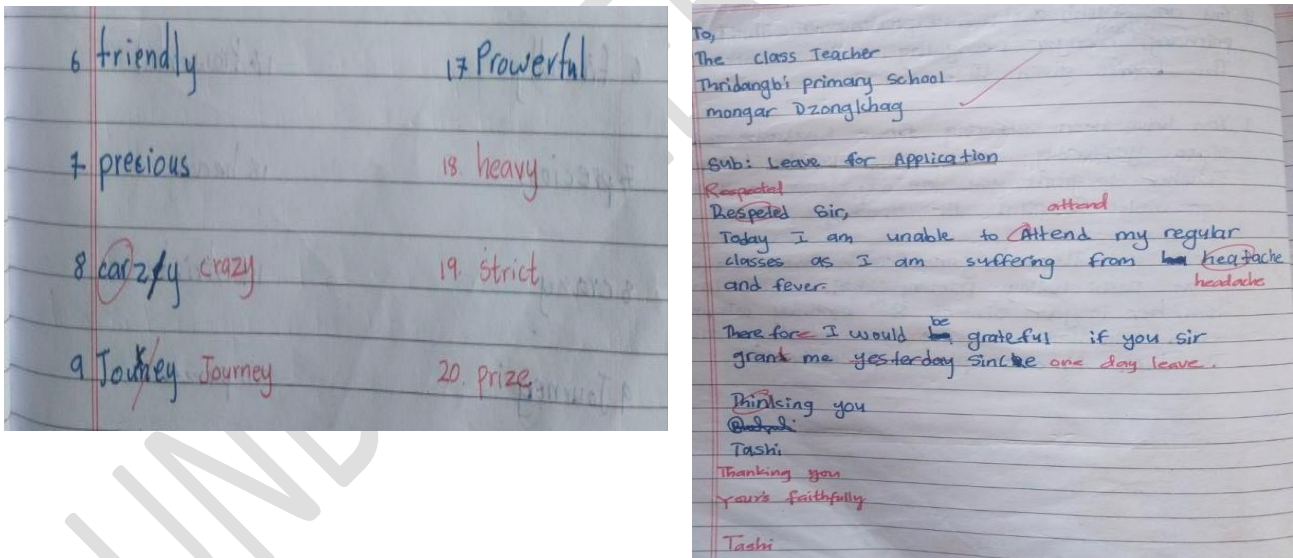 6 friendly
17 Prowerful
7 precious
18. heavy
8 carzy crazy
19. Strict
9 Journey Journey
20. prize
To,
The class Teacher
Thridangbi primary school
mongar Dzongkhag
Sub: Leave for Application
Respected
Respeted Sir,
attend
Today I am unable to Attend my regular
classes as I am suffering from heatache
and fever.
headache
be
There fore I would grateful if you sir
grant me yesterday since one day leave.
Thinking you
Tashi
Thanking you
Your's faithfully
Tashi